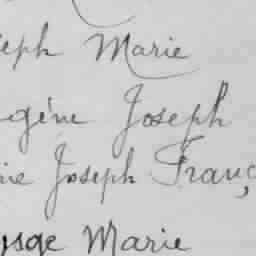 seph Marie
gène Joseph
ie Joseph Franç
ysge Marie